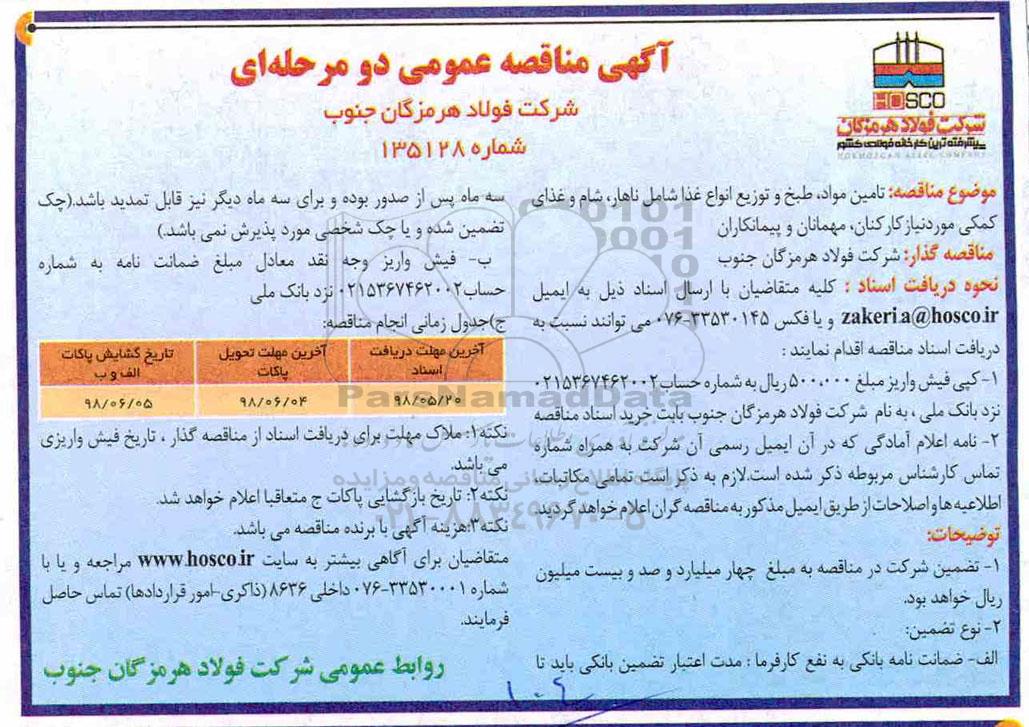 آگهی مناقصه عمومی دو مرحله‌ای
شرکت فولاد هرمزگان جنوب
شماره ۱۳۵۱۲۸
HOSCO
شرکت فولاد هرمزگان
پیشرفته ترین کارخانه فولادی کشور
HORMOZGAN STEEL COMPANY
موضوع مناقصه: تامین مواد، طبخ و توزیع انواع غذا شامل ناهار، شام و غذای
کمکی موردنیاز کارکنان، مهمانان و پیمانکاران
مناقصه گذار: شرکت فولاد هرمزگان جنوب
نحوه دریافت اسناد : کلیه متقاضیان با ارسال اسناد ذیل به ایمیل
zakeri.a@hosco.ir و یا فکس ۳۳۵۳۰۱۴۵-۰۷۶ می توانند نسبت به
دریافت اسناد مناقصه اقدام نمایند :
۱- کپی فیش واریز مبلغ ۵۰۰،۰۰۰ ریال به شماره حساب ۰۲۱۵۳۶۷۴۶۲۰۰۲
نزد بانک ملی ، به نام شرکت فولاد هرمزگان جنوب بابت خرید اسناد مناقصه
۲- نامه اعلام آمادگی که در آن ایمیل رسمی آن شرکت به همراه شماره
تماس کارشناس مربوطه ذکر شده است.لازم به ذکر است تمامی مکاتبات،
اطلاعیه ها و اصلاحات از طریق ایمیل مذکور به مناقصه گران اعلام خواهد گردید.
توضیحات:
۱- تضمین شرکت در مناقصه به مبلغ چهار میلیارد و صد و بیست میلیون
ریال خواهد بود.
۲- نوع تضمین:
الف- ضمانت نامه بانکی به نفع کارفرما : مدت اعتبار تضمین بانکی باید تا
سه ماه پس از صدور بوده و برای سه ماه دیگر نیز قابل تمدید باشد.(چک
تضمین شده و یا چک شخصی مورد پذیرش نمی باشد.)
ب- فیش واریز وجه نقد معادل مبلغ ضمانت نامه به شماره
حساب ۰۲۱۵۳۶۷۴۶۲۰۰۲ نزد بانک ملی
ج)جدول زمانی انجام مناقصه:
آخرین مهلت دریافت اسناد	آخرین مهلت تحویل پاکات	تاریخ گشایش پاکات الف و ب
۹۸/۰۵/۲۰	۹۸/۰۶/۰۴	۹۸/۰۶/۰۵
نکته۱: ملاک مهلت برای دریافت اسناد از مناقصه گذار ، تاریخ فیش واریزی
می باشد.
نکته۲: تاریخ بازگشایی پاکات ج متعاقبا اعلام خواهد شد.
نکته۳:هزینه آگهی با برنده مناقصه می باشد.
متقاضیان برای آگاهی بیشتر به سایت www.hosco.ir مراجعه و یا با
شماره ۳۳۵۳۰۰۰۱-۰۷۶ داخلی ۸۶۳۶ (ذاکری-امور قراردادها) تماس حاصل
فرمایند.
روابط عمومی شرکت فولاد هرمزگان جنوب
ParsNamadData
۰۲۱-۸۸۳۴۹۶۷۰-۵